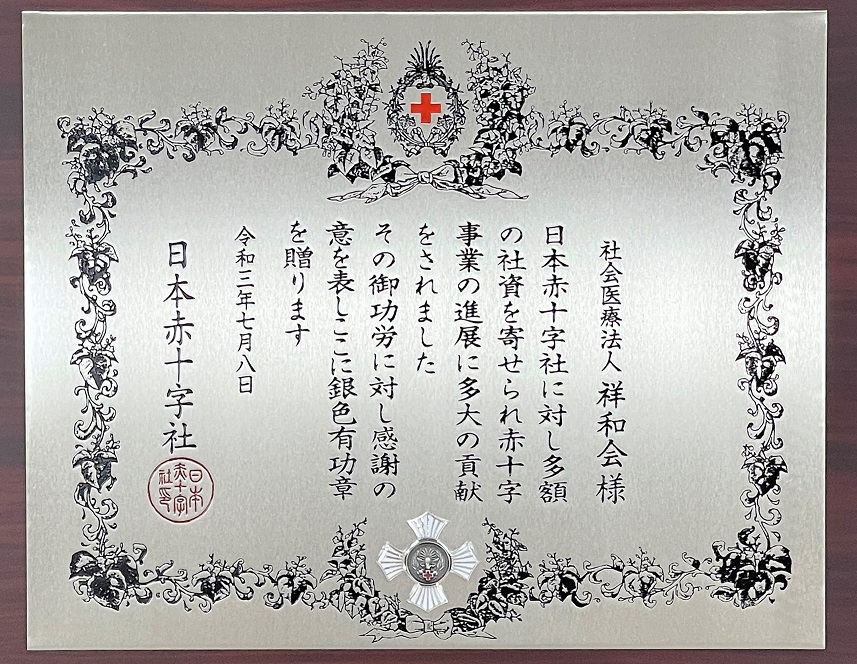 社会医療法人 祥和会様
日本赤十字社に対し多額
の社資を寄せられ赤十字
事業の進展に多大の貢献
をされました
その御功労に対し感謝の
意を表しここに銀色有功章
を贈ります
令和三年七月八日
日本赤十字社
日本
赤十字
社印